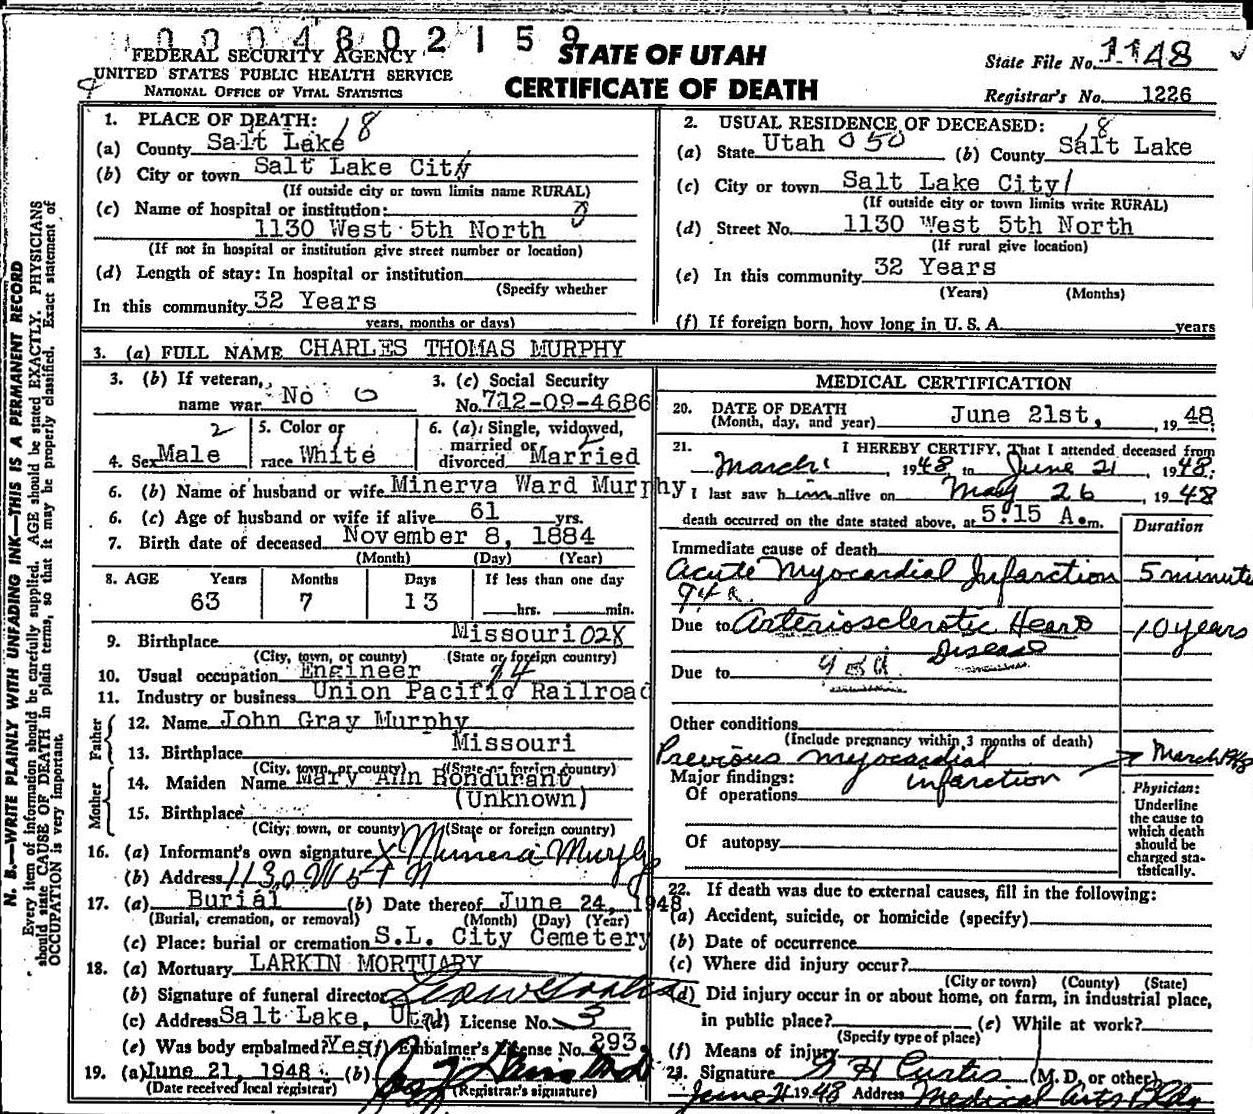 0004802159
FEDERAL SECURITY AGENCY
UNITED STATES PUBLIC HEALTH SERVICE
NATIONAL OFFICE OF VITAL STATISTICS
STATE OF UTAH
CERTIFICATE OF DEATH
State File No. 1148
Registrar's No. 1226
N. B.—WRITE PLAINLY WITH UNFADING INK—THIS IS A PERMANENT RECORD
Every item of information should be carefully supplied. AGE should be stated EXACTLY. PHYSICIANS
should state CAUSE OF DEATH in plain terms, so that it may be properly classified. Exact statement of
OCCUPATION is very important.
1. PLACE OF DEATH: 18
(a) County Salt Lake
(b) City or town Salt Lake City
(If outside city or town limits name RURAL)
(c) Name of hospital or institution:
1130 West 5th North
(If not in hospital or institution give street number or location)
(d) Length of stay: In hospital or institution
(Specify whether
In this community 32 Years
years, months or days)
2. USUAL RESIDENCE OF DECEASED: 18
(a) State Utah 050 (b) County Salt Lake
(c) City or town Salt Lake City
(If outside city or town limits write RURAL)
(d) Street No. 1130 West 5th North
(If rural give location)
(e) In this community 32 Years
(Years) (Months)
(f) If foreign born, how long in U. S. A. years
3. (a) FULL NAME CHARLES THOMAS MURPHY
3. (b) If veteran, name war No 0
3. (c) Social Security No. 712-09-4686
4. Sex Male 2
5. Color or race White 1
6. (a) Single, widowed, married or divorced Married 2
6. (b) Name of husband or wife Minerva Ward Murphy
6. (c) Age of husband or wife if alive 61 yrs.
7. Birth date of deceased November 8, 1884
(Month) (Day) (Year)
8. AGE Years Months Days If less than one day
63 7 13 hrs. min.
9. Birthplace Missouri 028
(City, town, or county) (State or foreign country)
10. Usual occupation Engineer 74
11. Industry or business Union Pacific Railroad
Father
12. Name John Gray Murphy
13. Birthplace Missouri
(City, town, or county) (State or foreign country)
Mother
14. Maiden Name Mary Ann Bondurant
15. Birthplace (Unknown)
(City, town, or county) (State or foreign country)
16. (a) Informant's own signature X Minerva Murphy
(b) Address 1130 W 5th N
17. (a) Burial (b) Date thereof June 24, 1948
(Burial, cremation, or removal) (Month) (Day) (Year)
(c) Place: burial or cremation S.L. City Cemetery
18. (a) Mortuary LARKIN MORTUARY
(b) Signature of funeral director
(c) Address Salt Lake, Utah (d) License No. 3
(e) Was body embalmed? Yes (f) Embalmer's License No. 293
19. (a) June 21, 1948 (b)
(Date received local registrar) (Registrar's signature)
MEDICAL CERTIFICATION
20. DATE OF DEATH June 21st, , 19 48
(Month, day, and year)
21. I HEREBY CERTIFY, That I attended deceased from
March , 1948, to June 21 1948.
I last saw h im alive on May 26 , 1948
death occurred on the date stated above, at 5:15 A.m.
Duration
Immediate cause of death
Acute Myocardial Infarction 5 minutes
94a
Due to Arteriosclerotic Heart Disease 10 years
Due to
Other conditions
(Include pregnancy within 3 months of death)
Previous myocardial infarction → March 1948
Major findings:
Of operations
Of autopsy
Physician:
Underline
the cause to
which death
should be
charged sta-
tistically.
22. If death was due to external causes, fill in the following:
(a) Accident, suicide, or homicide (specify)
(b) Date of occurrence
(c) Where did injury occur?
(City or town) (County) (State)
(d) Did injury occur in or about home, on farm, in industrial place,
in public place? (e) While at work?
(Specify type of place)
(f) Means of injury
23. Signature G H Curtis (M. D. or other)
June 21 1948 Address Medical Arts Bldg